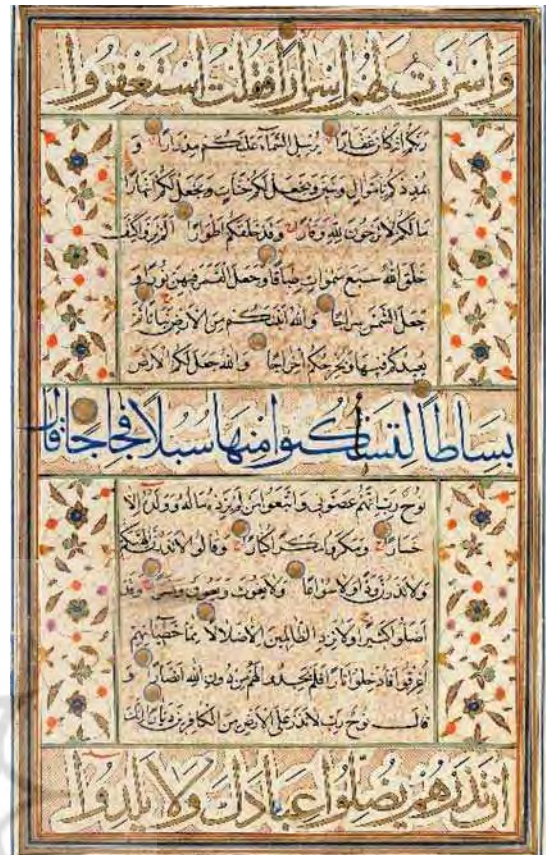 وَأَسْرَرْتُ لَهُمْ إِسْرَارًا فَقُلْتُ اسْتَغْفِرُوا
رَبَّكُمْ إِنَّهُ كَانَ غَفَّارًا يُرْسِلِ السَّمَاءَ عَلَيْكُمْ مِدْرَارًا وَ
يُمْدِدْكُمْ بِأَمْوَالٍ وَبَنِينَ وَيَجْعَلْ لَكُمْ جَنَّاتٍ وَيَجْعَلْ لَكُمْ أَنْهَارًا
مَا لَكُمْ لَا تَرْجُونَ لِلَّهِ وَقَارًا وَقَدْ خَلَقَكُمْ أَطْوَارًا أَلَمْ تَرَوْا كَيْفَ
خَلَقَ اللَّهُ سَبْعَ سَمَوَاتٍ طِبَاقًا وَجَعَلَ الْقَمَرَ فِيهِنَّ نُورًا وَ
جَعَلَ الشَّمْسَ سِرَاجًا وَاللَّهُ أَنْبَتَكُمْ مِنَ الْأَرْضِ نَبَاتًا ثُمَّ
يُعِيدُكُمْ فِيهَا وَيُخْرِجُكُمْ إِخْرَاجًا وَاللَّهُ جَعَلَ لَكُمُ الْأَرْضَ
بِسَاطًا لِتَسْلُكُوا مِنْهَا سُبُلًا فِجَاجًا قَالَ
نُوحٌ رَبِّ إِنَّهُمْ عَصَوْنِي وَاتَّبَعُوا مَنْ لَمْ يَزِدْهُ مَالُهُ وَوَلَدُهُ إِلَّا
خَسَارًا وَمَكَرُوا مَكْرًا كُبَّارًا وَقَالُوا لَا تَذَرُنَّ آلِهَتَكُمْ
وَلَا تَذَرُنَّ وَدًّا وَلَا سُوَاعًا وَلَا يَغُوثَ وَيَعُوقَ وَنَسْرًا وَقَدْ
أَضَلُّوا كَثِيرًا وَلَا تَزِدِ الظَّالِمِينَ إِلَّا ضَلَالًا مِمَّا خَطِيئَاتِهِمْ
أُغْرِقُوا فَأُدْخِلُوا نَارًا فَلَمْ يَجِدُوا لَهُمْ مِنْ دُونِ اللَّهِ أَنْصَارًا وَ
قَالَ نُوحٌ رَبِّ لَا تَذَرْ عَلَى الْأَرْضِ مِنَ الْكَافِرِينَ دَيَّارًا إِنَّكَ
إِنْ تَذَرْهُمْ يُضِلُّوا عِبَادَكَ وَلَا يَلِدُوا